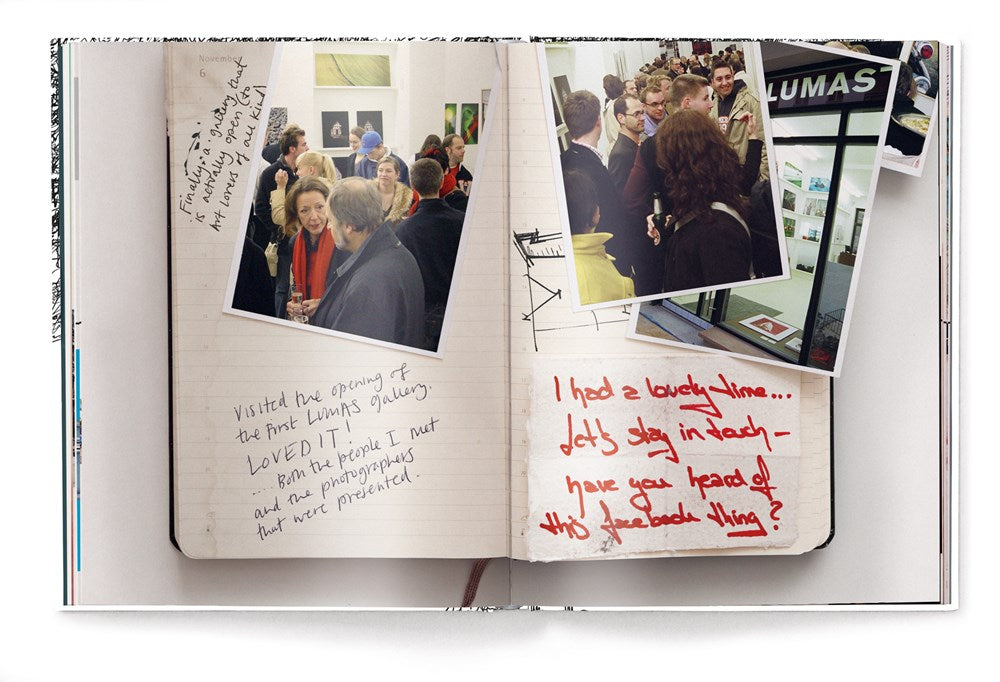 November
6
Finally: a gallery that
is actually open (to
Art Lovers of all kind)
Visited the opening of
the first LUMAS gallery.
LOVED IT!
.... Both the people I met
and the photographers
that were presented.
LUMAS
I had a lovely time...
Let's stay in touch –
have you heard of
this facebook thing?